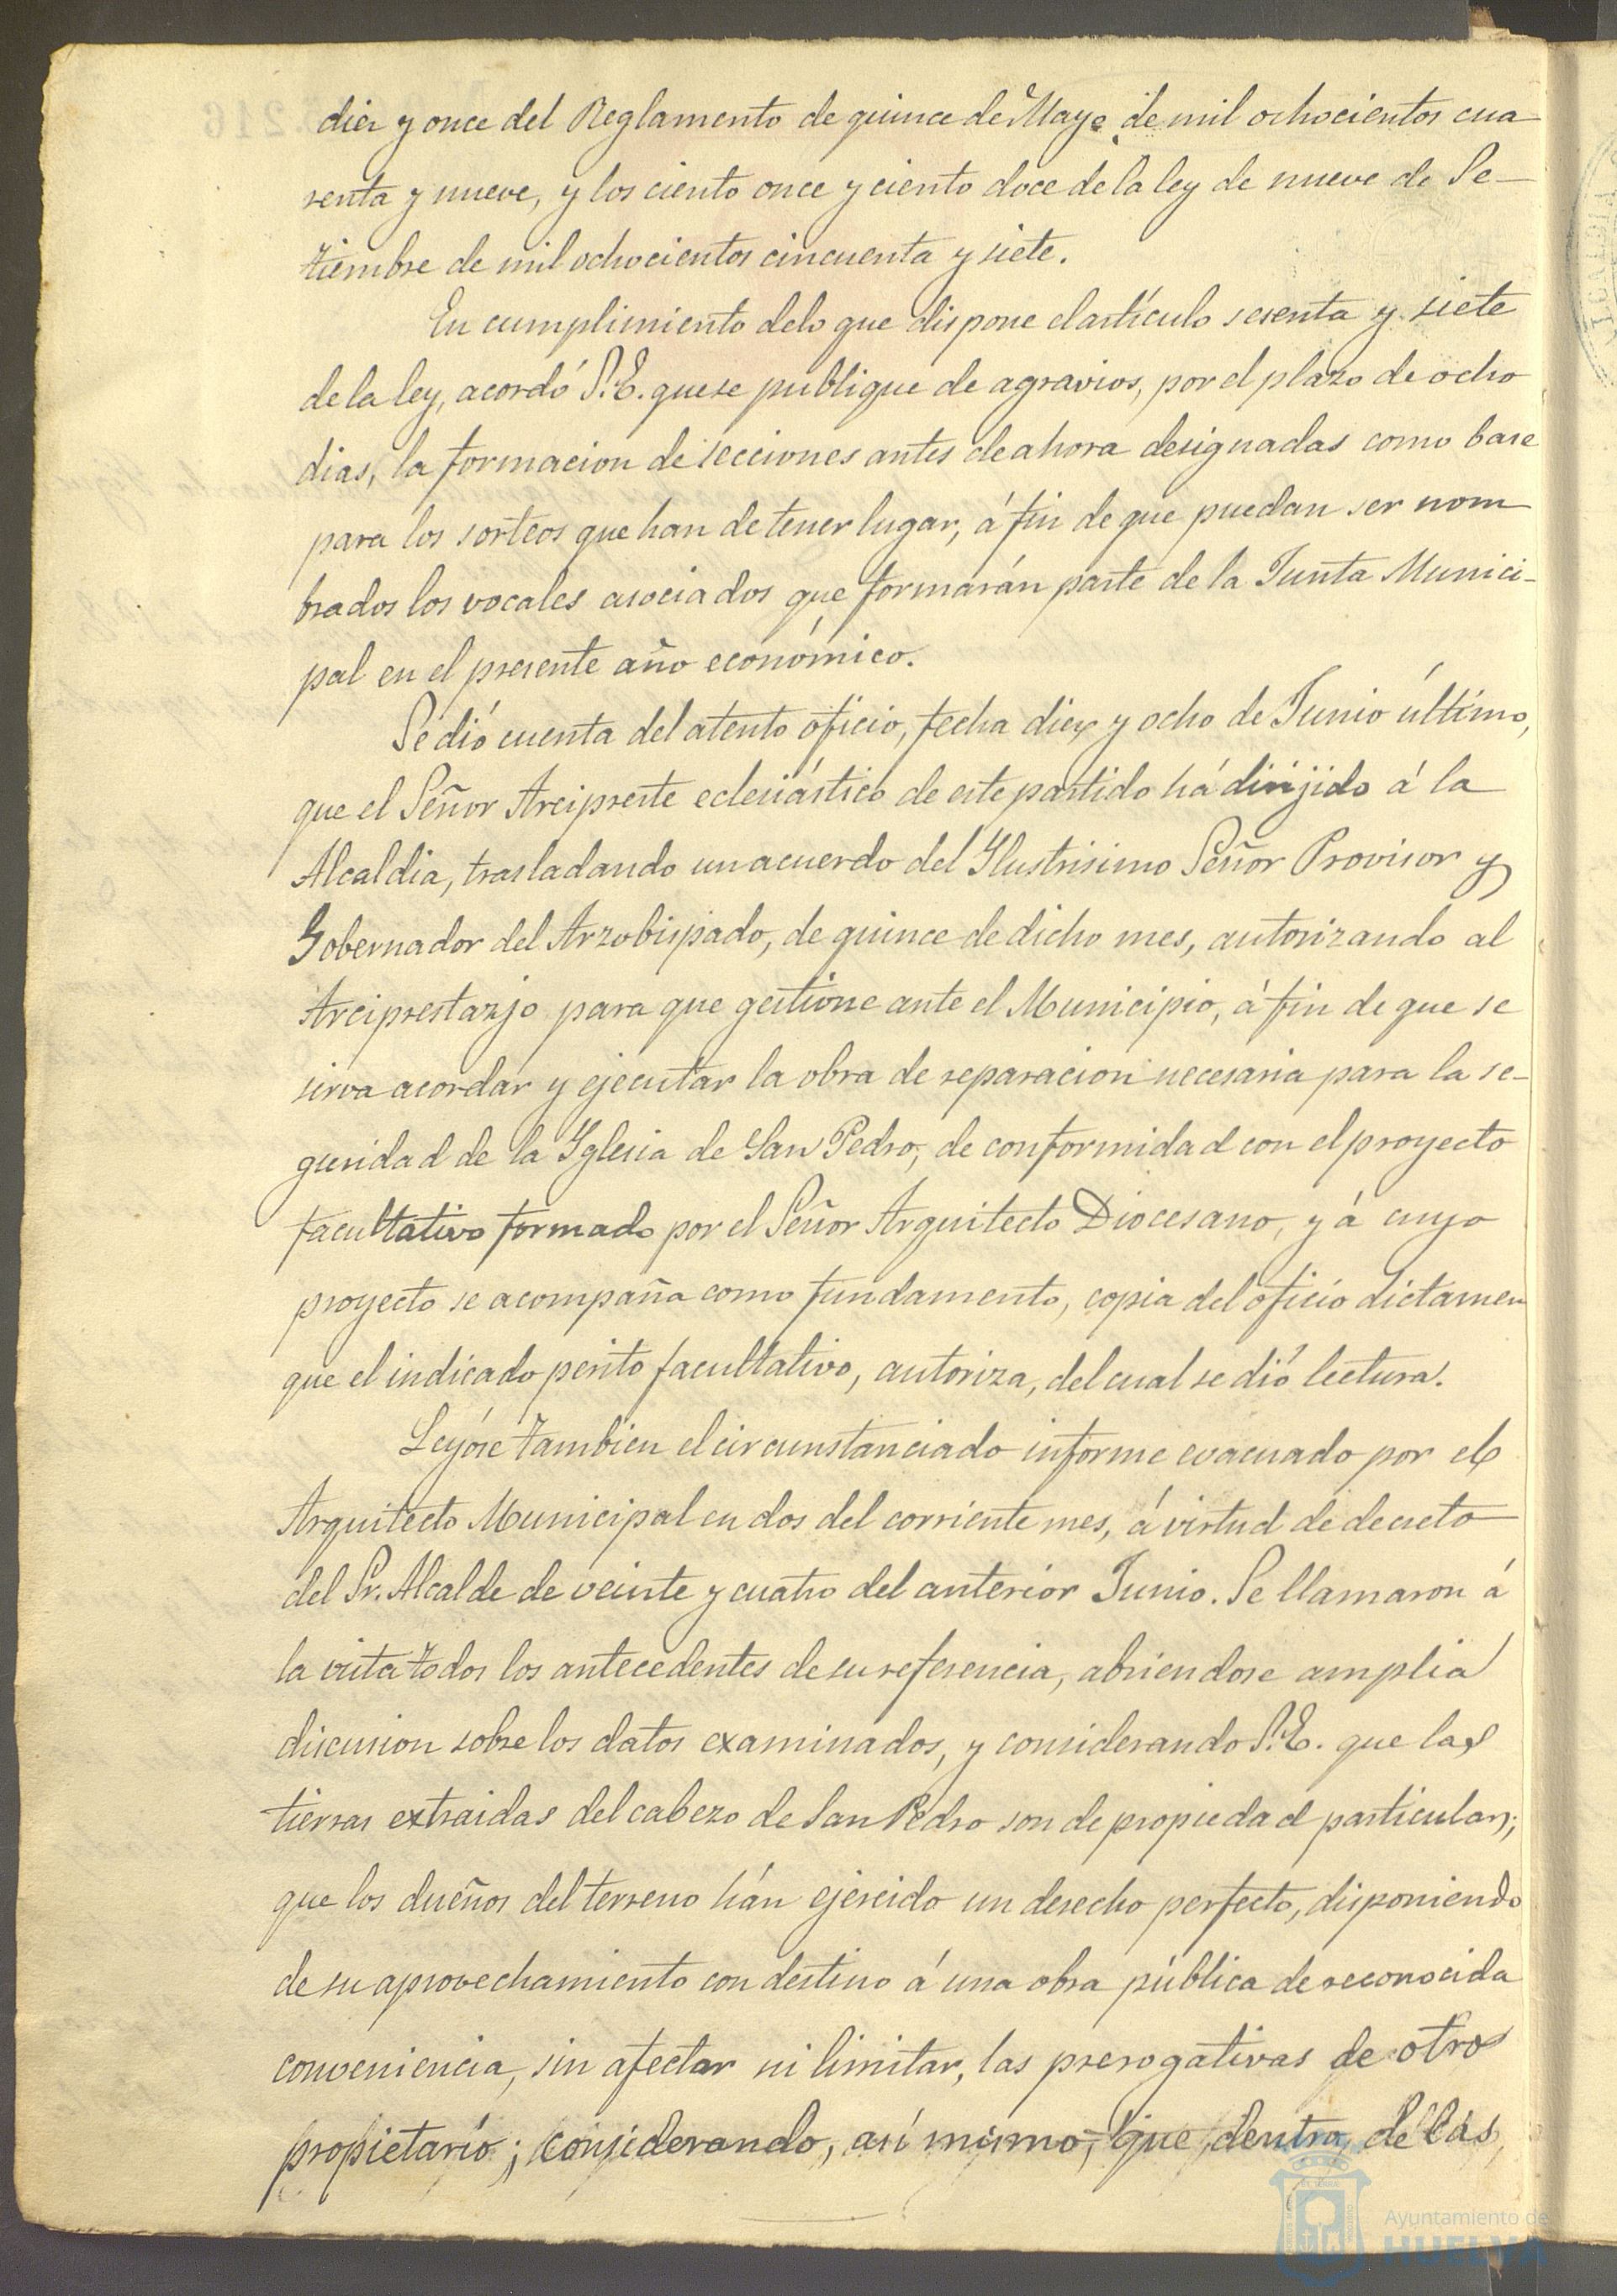 diez y once del Reglamento de quince de Mayo de mil ochocientos cua-
renta y nueve, y los ciento once y ciento doce de la ley de nueve de Se-
tiembre de mil ochocientos cincuenta y siete.
En cumplimiento de lo que dispone el artículo sesenta y siete
de la ley, acordó S.E. que se publique de agravios, por el plazo de ocho
dias, la formacion de secciones antes de ahora designadas como base
para los sorteos que han de tener lugar, á fin de que puedan ser nom
brados los vocales asociados que formarán parte de la Junta Munici-
pal en el presente año económico.
Se dió cuenta del atento oficio, fecha diez y ocho de Junio último,
que el Señor Arcipreste eclesiástico de este partido há dirijido á la
Alcaldia, trasladando un acuerdo del Ylustrisimo Señor Provisor y
Gobernador del Arzobispado, de quince de dicho mes, autorizando al
Arciprestazjo para que gestione ante el Municipio, á fin de que se
sirva acordar y ejecutar la obra de reparacion necesaria para la se-
guridad de la Yglesia de San Pedro, de conformidad con el proyecto
facultativo formado por el Señor Arquitecto Diocesano, y á cuyo
proyecto se acompaña como fundamento, copia del oficio dictamen
que el indicado perito facultativo, autoriza, del cual se dió lectura.
Leyóse tambien el circunstanciado informe evacuado por el
Arquitecto Municipal en dos del corriente mes, á virtud de decreto
del Sr. Alcalde de veinte y cuatro del anterior Junio. Se llamaron á
la vista todos los antecedentes de su referencia, abriendose amplia
discusion sobre los datos examinados, y considerando S.E. que las
tierras extraidas del cabezo de San Pedro son de propiedad particular;
que los dueños del terreno hán ejercido un derecho perfecto, disponiendo
de su aprovechamiento con destino á una obra pública de reconocida
conveniencia, sin afectar ni limitar, las prerogativas de otro
propietario; considerando, así mismo, que dentro de las
Ayuntamiento de
HUELVA